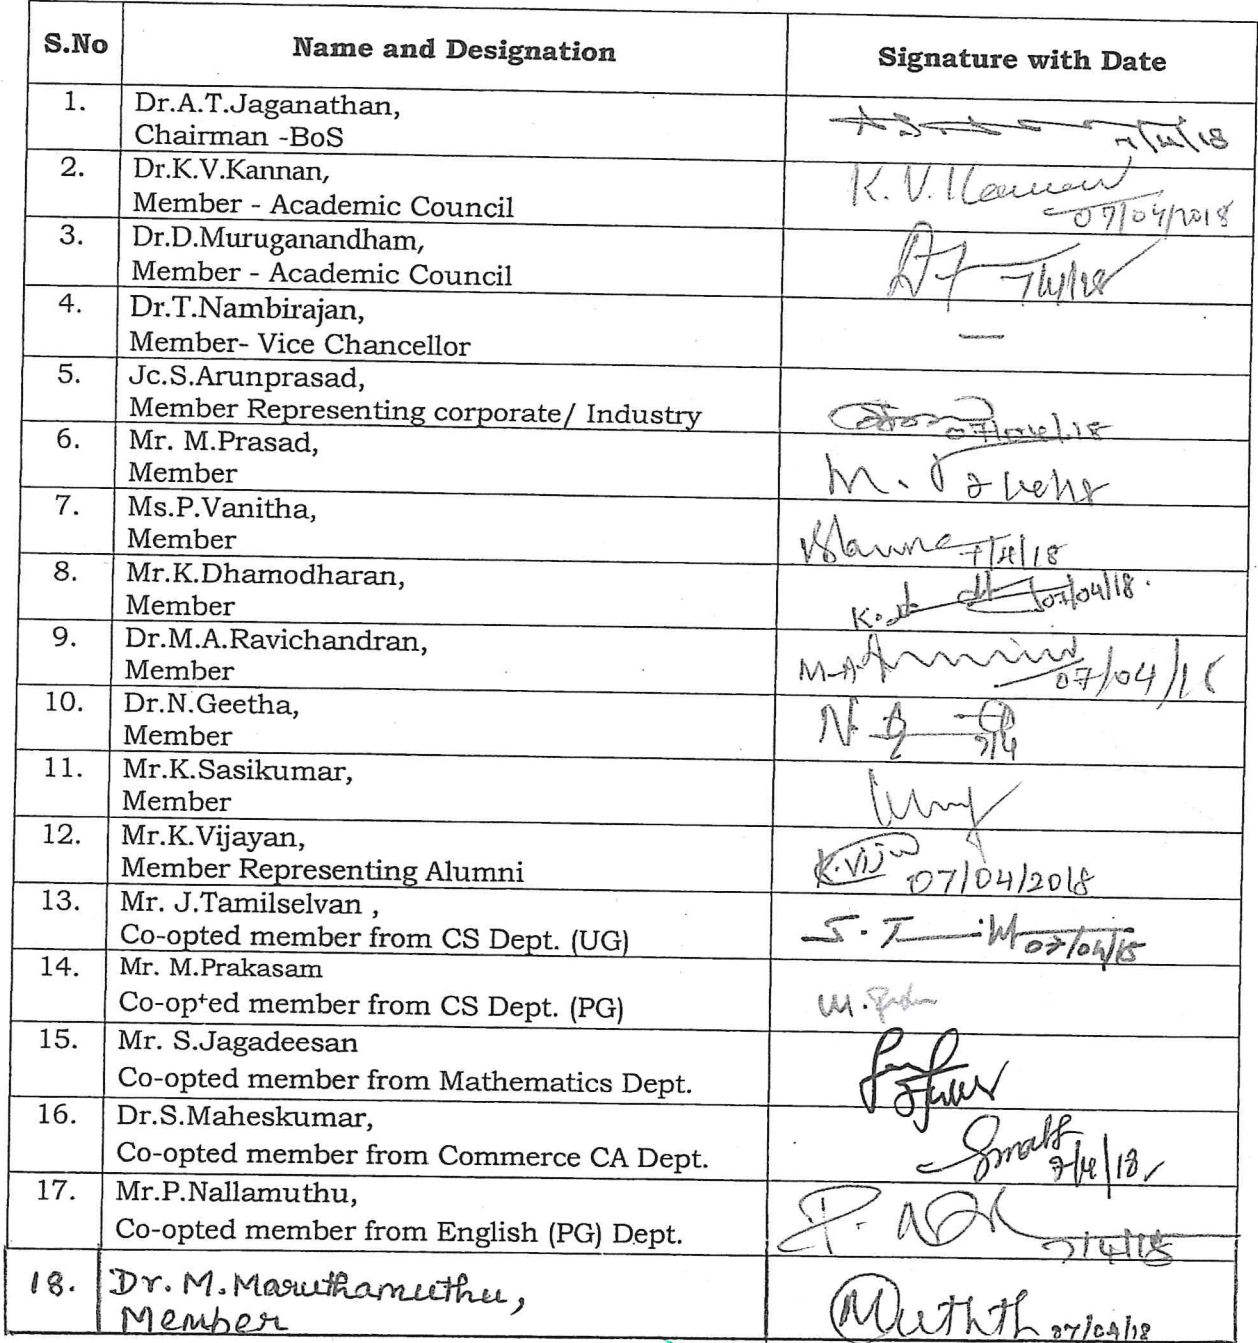 S.No Name and Designation Signature with Date
1. Dr.A.T.Jaganathan,
Chairman -BoS
7/4/18
2. Dr.K.V.Kannan,
Member - Academic Council
K. V. Kannan
07/04/2018
3. Dr.D.Muruganandham,
Member - Academic Council
7/4/18
4. Dr.T.Nambirajan,
Member- Vice Chancellor
—
5. Jc.S.Arunprasad,
Member Representing corporate/ Industry
07/04/18
6. Mr. M.Prasad,
Member
M.
7. Ms.P.Vanitha,
Member
7/4/18
8. Mr.K.Dhamodharan,
Member
07/04/18.
9. Dr.M.A.Ravichandran,
Member
M.A
07/04/18
10. Dr.N.Geetha,
Member
N.
7/4
11. Mr.K.Sasikumar,
Member
12. Mr.K.Vijayan,
Member Representing Alumni
K.Vij
07/04/2018
13. Mr. J.Tamilselvan ,
Co-opted member from CS Dept. (UG)
07/04/18
14. Mr. M.Prakasam
Co-opted member from CS Dept. (PG)
M.
15. Mr. S.Jagadeesan
Co-opted member from Mathematics Dept.
16. Dr.S.Maheskumar,
Co-opted member from Commerce CA Dept.
7/4/18
17. Mr.P.Nallamuthu,
Co-opted member from English (PG) Dept.
P.
7/4/18
18. Dr. M. Maruthamuthu,
Member
07/04/18